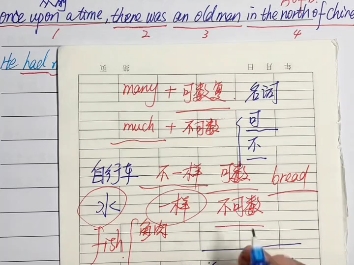 once upon a time, there was an old man in the north of China
1 2 3 4
He had
页 月 日 年
many + 可数复 名词
much + 不可数 可
不
自行车 不一样 可数 bread
水 一样 不可数
fish 鱼肉